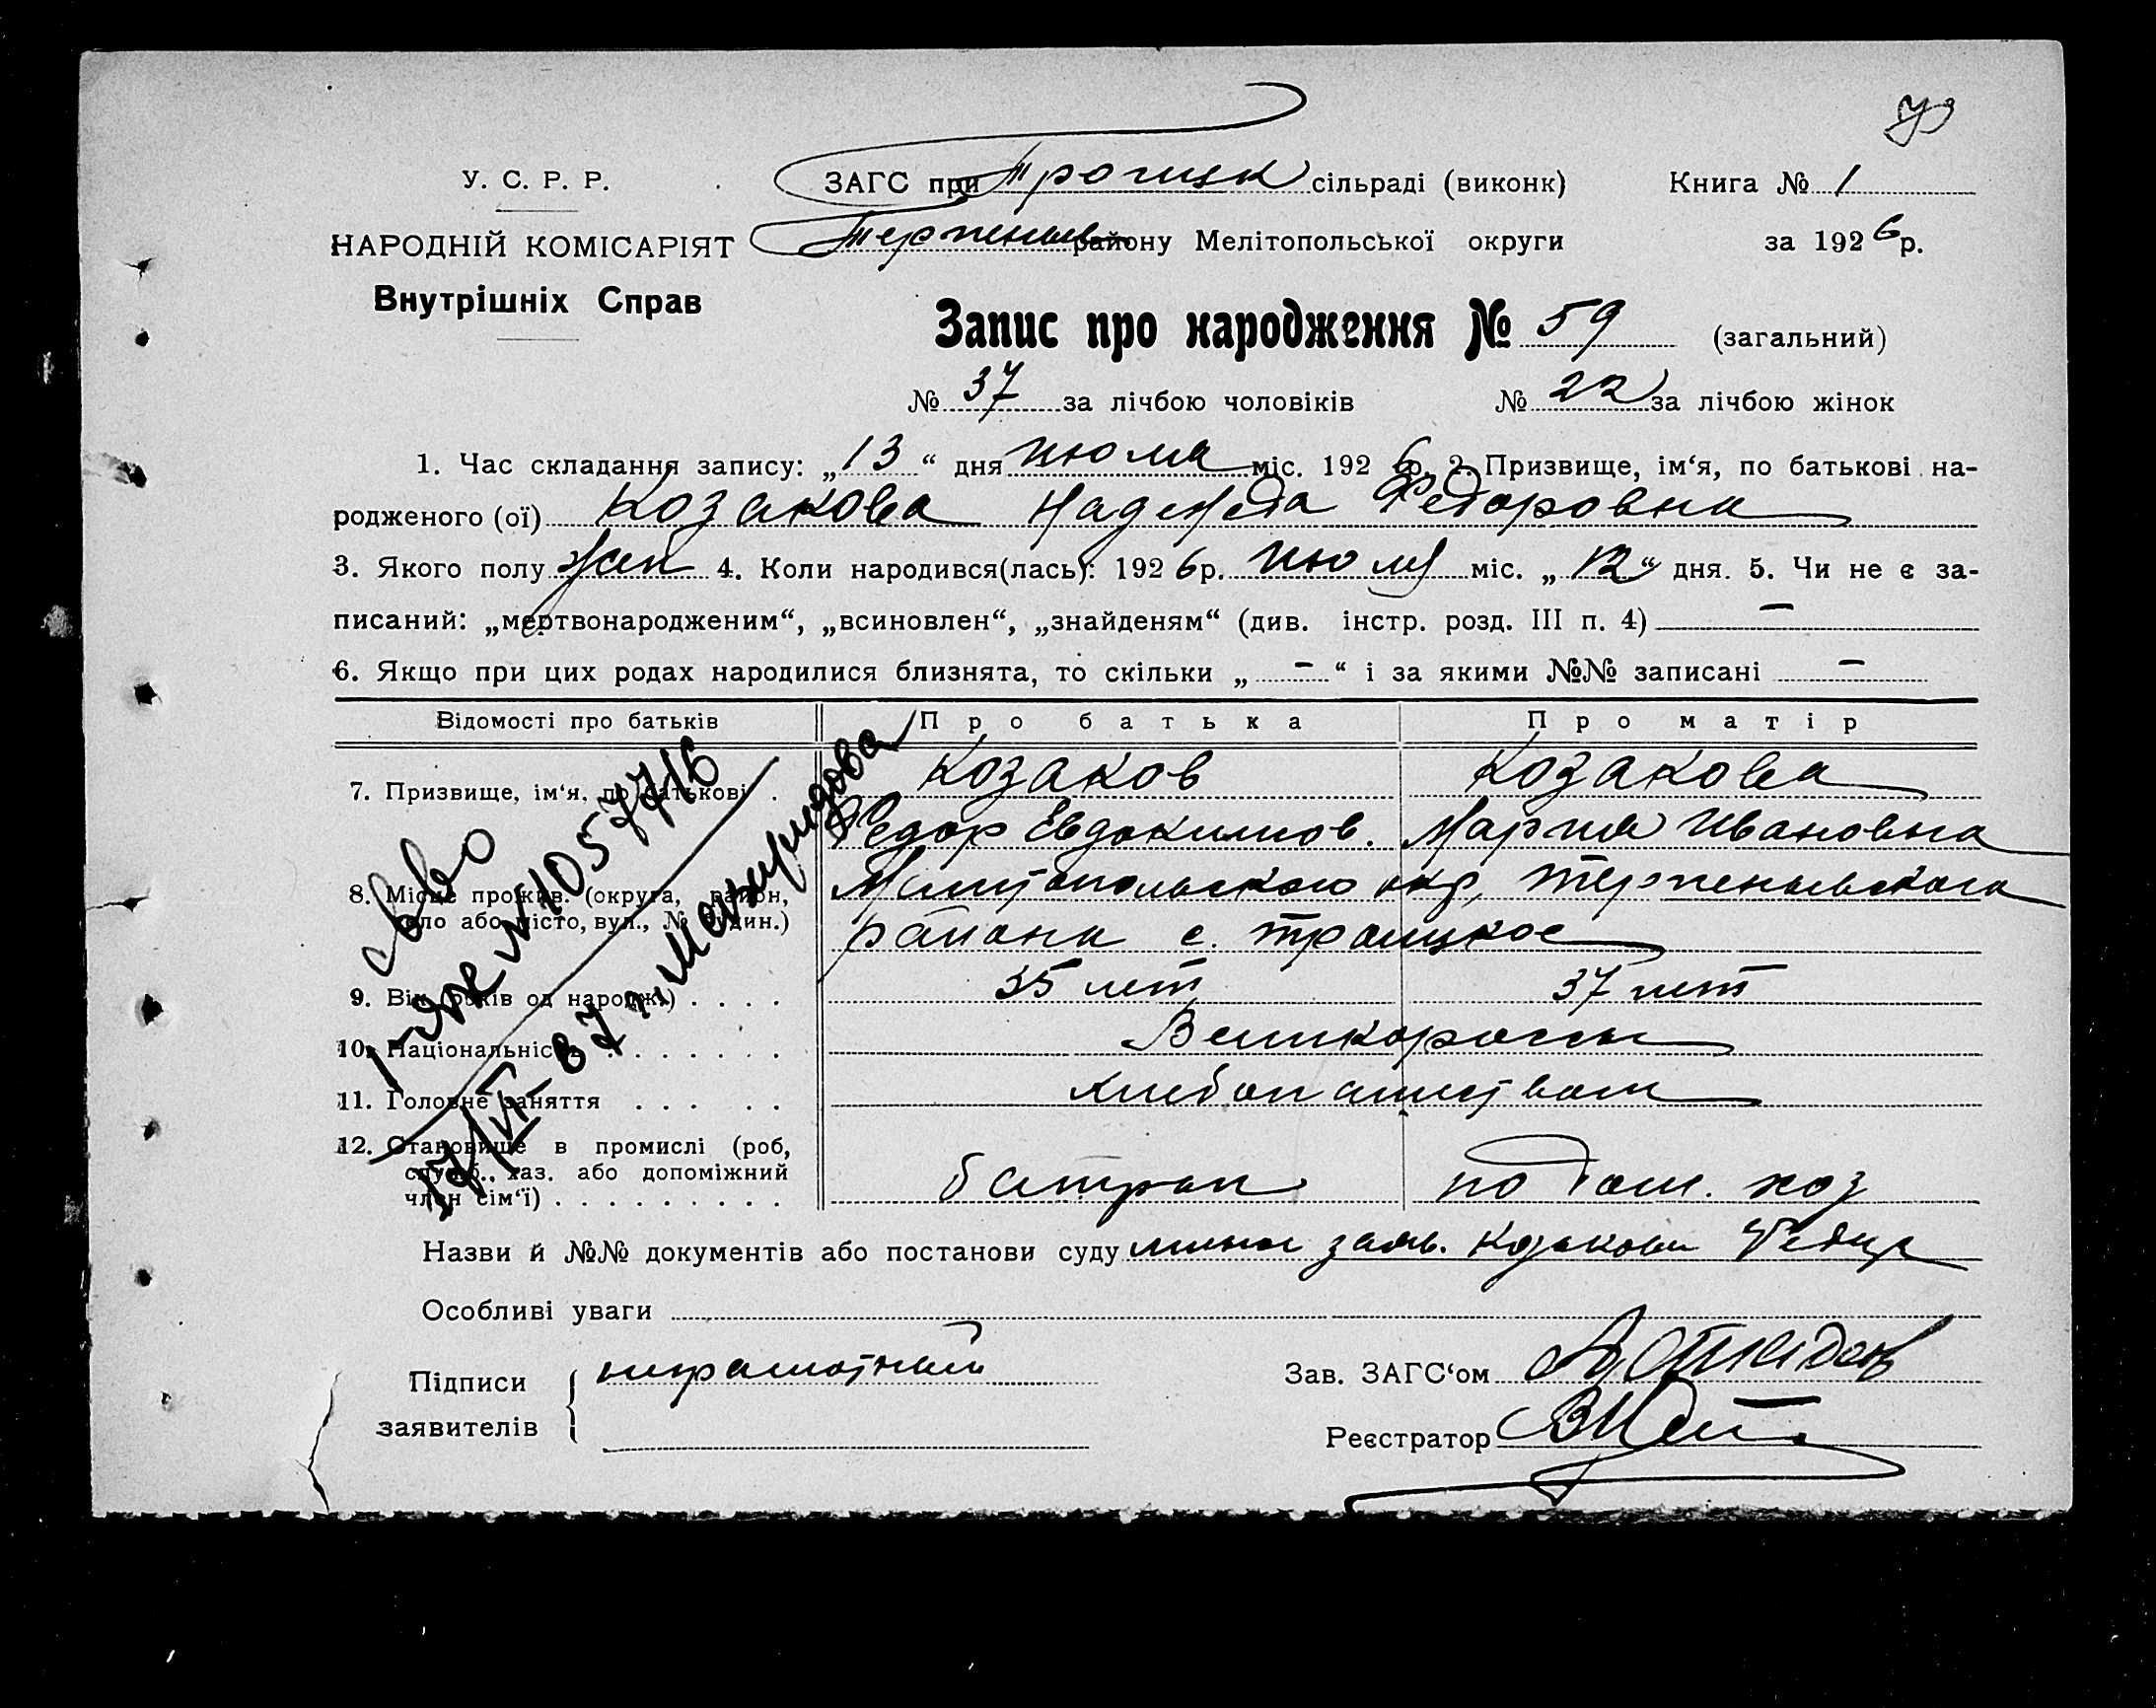 У. С. Р. Р.
НАРОДНІЙ КОМІСАРІЯТ
Внутрішніх Справ
ЗАГС при Троицк сільраді (виконк) Книга № 1
Терпеньев району Мелітопольської округи за 1926 р.
Запис про народження № 59 (загальний)
№ 37 за лічбою чоловіків № 22 за лічбою жінок
1. Час складання запису: „13“ дня июля міс. 1926 р. 2. Призвище, ім‘я, по батькові на-
родженого (ої) Козакова Надежда Федоровна
3. Якого полу жен 4. Коли народився(лась): 1926 р. июля міс. „12“ дня. 5. Чи не є за-
писаний: „мертвонародженим“, „всиновлен“, „знайденям“ (див. інстр. розд. III п. 4) —
6. Якщо при цих родах народилися близнята, то скільки „ – “ і за якими №№ записані –
Відомості про батьків Про батька Про матір
7. Призвище, ім‘я, по батькові . Козаков Козакова
Федор Евдокимов. Мария Ивановна
8. Місце прожив. (округа, район, Мелитопольского окр, Терпеньевского
село або місто, вул., № будин.) района с. Троицкое
9. Вік (років од народж.) . . . . 35 лет 37 лет
10. Національність . . . . . . . Великороссы
11. Головне заняття . . . . . хлебопашеством
12. Становище в промислі (роб,
служб., хаз. або допоміжний
член сім‘ї) . . . . . . . . . батрак по дом. хоз
св-во
№ 1057716
17/VI-87 г.
Назви й №№ документів або постанови суду заяв. Козакова Федора
Особливі уваги
Підписи неграмотный
заявителів
Зав. ЗАГС‘ом
Реєстратор